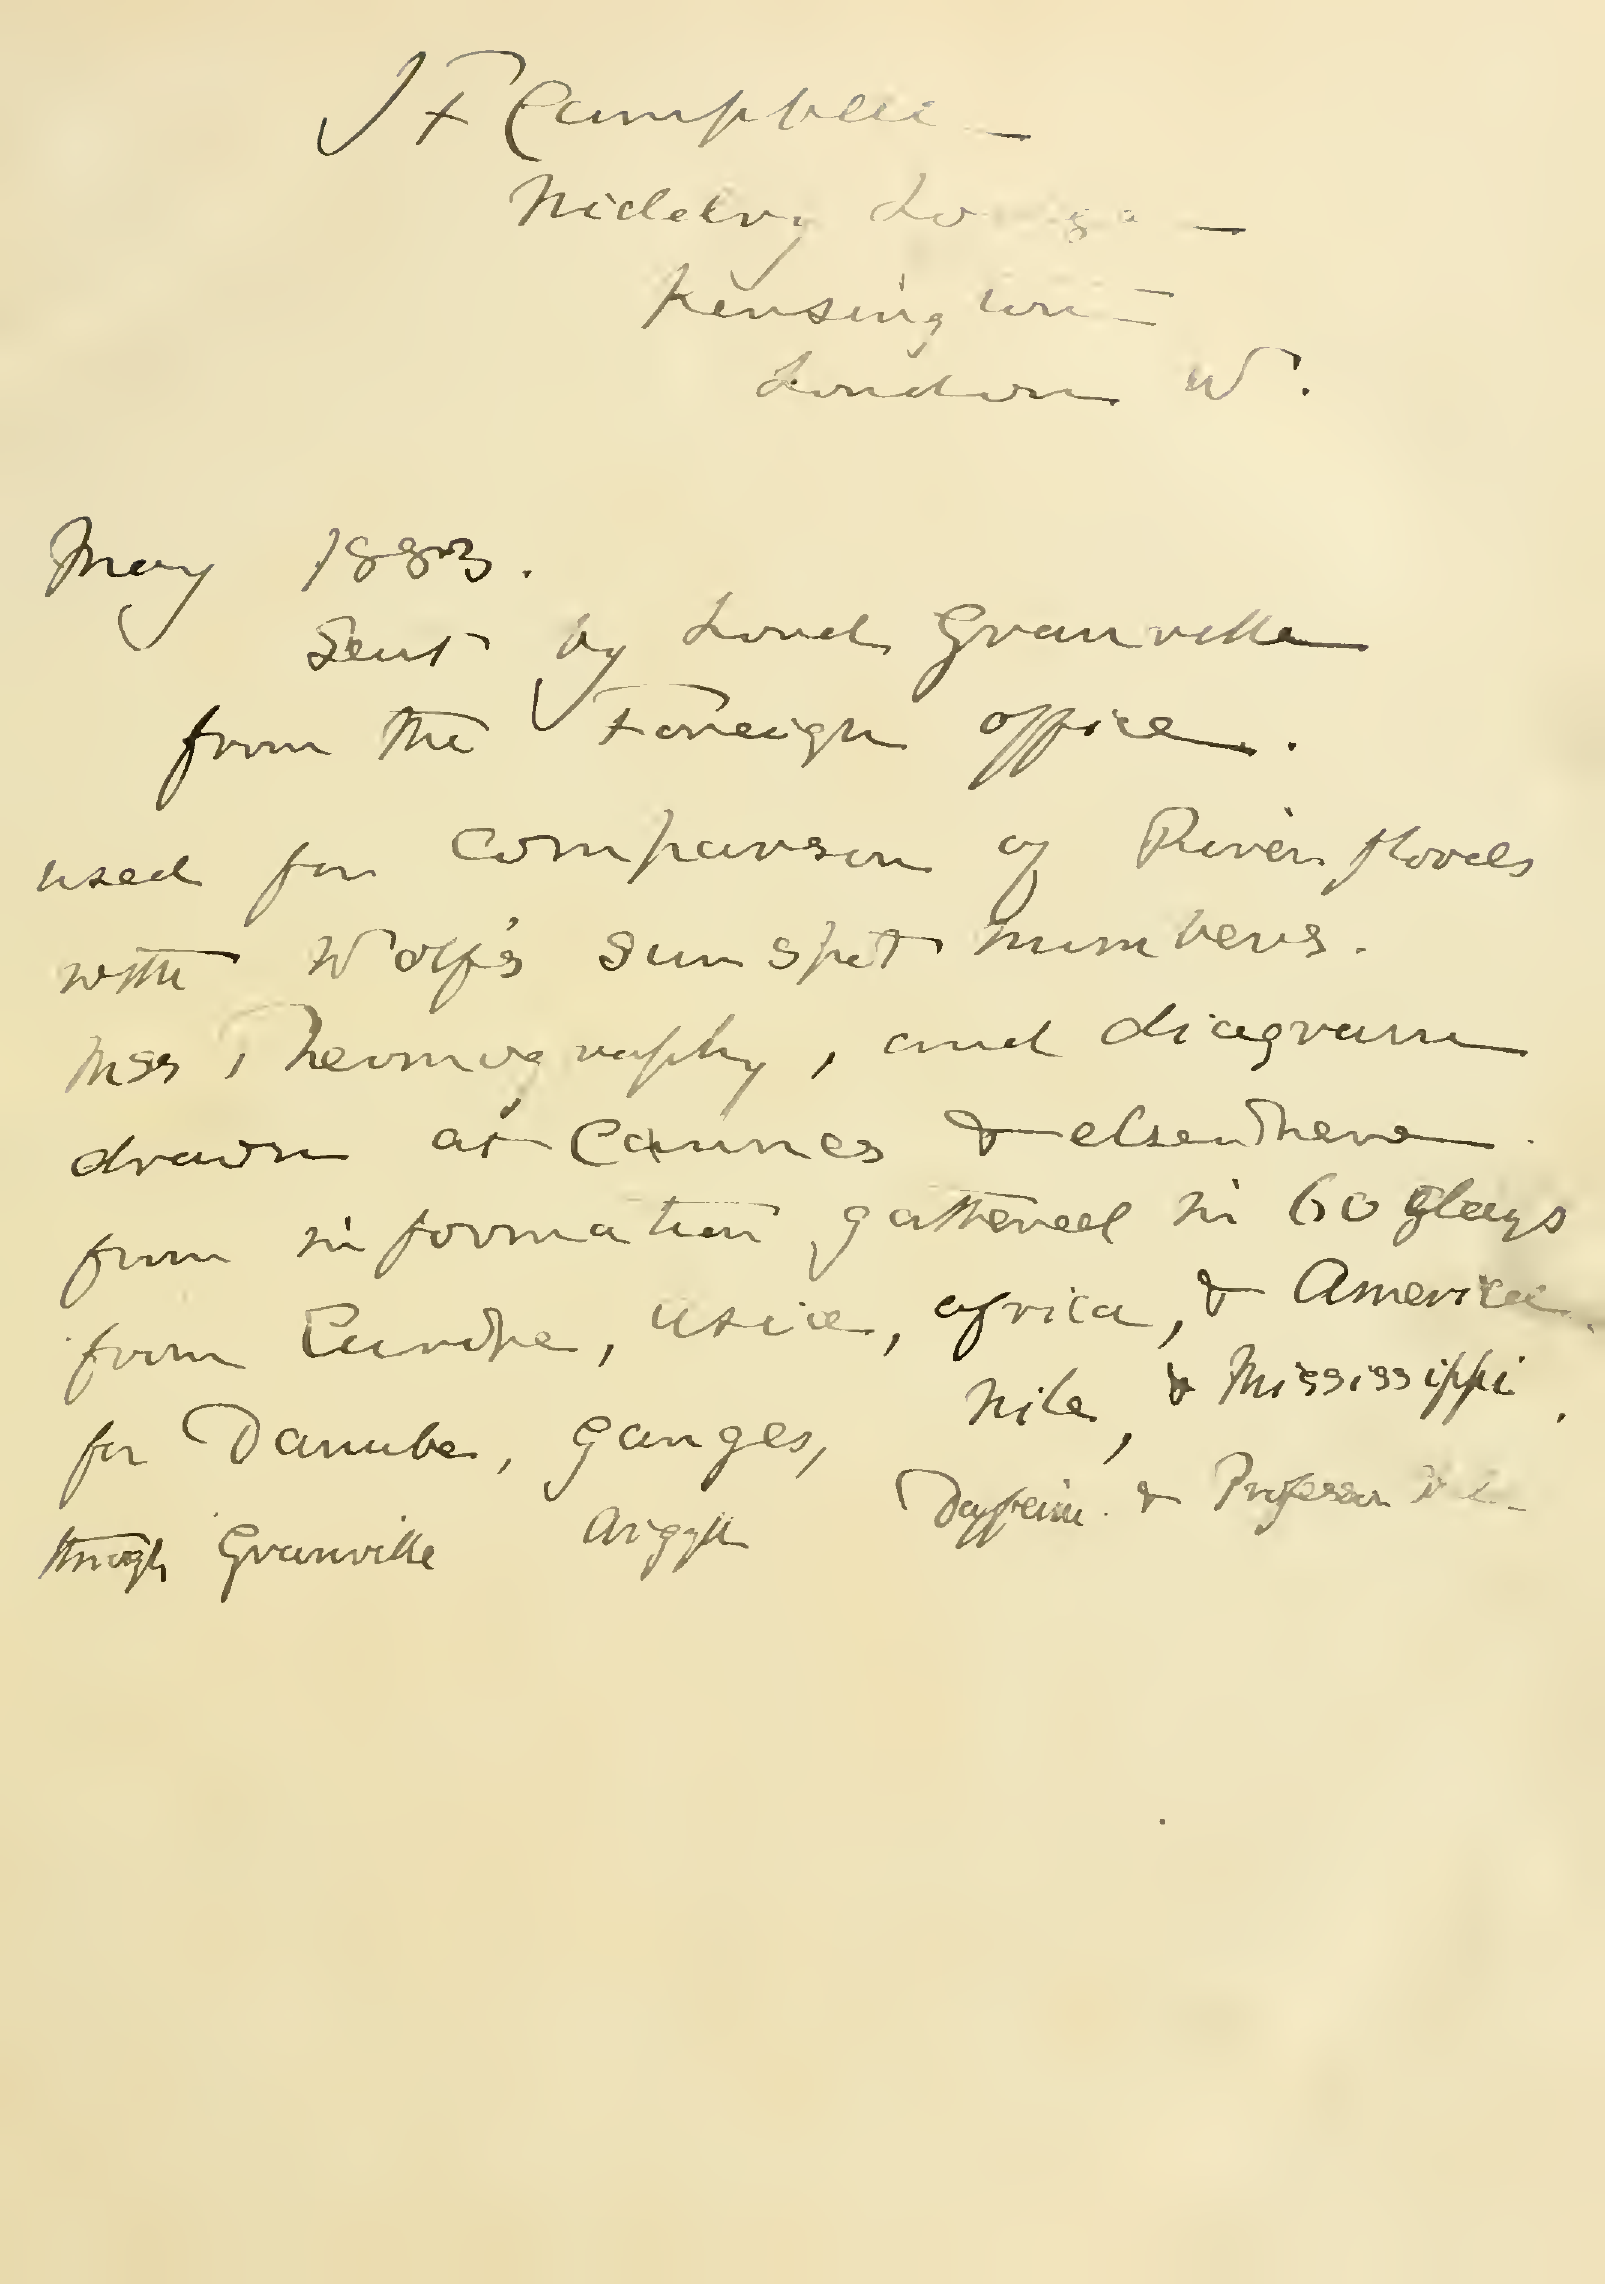 J F Campbell —
Niddry Lodge —
Kensington =
London W.
May 1883.
Sent by Lord Granville
from the Foreign office.
used for comparison of River floods
with Wolf's sunspot numbers.
Mss Thermography, and diagram
drawn at Cannes & elsewhere.
from information gathered in 60 days
from Europe, Asia, africa, & America.
for Danube, Ganges, Nile, & Mississippi.
through Granville Argyll Dufferin. & Professor